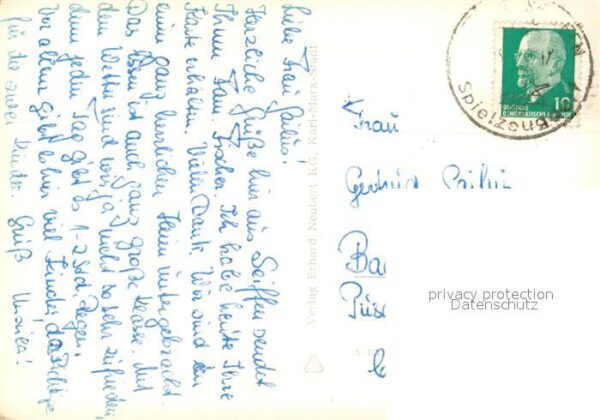 Liebe Frau
Herzliche Grüße hier aus Seiffen sendet
Ihnen Fam. Fischer. Ich habe heute Ihre
Karte erhalten. Vielen Dank. Wir sind in
einem ganz herrlichen Heim untergebracht.
Das Essen ist auch ganz große Klasse. Mit
dem Wetter sind wir ja nicht so sehr zufrieden,
denn jeden Tag gibt es 1-2 Std. Regen.
Vor allem gibt es hier viel Kinder, das Richtige
für die zwei Kinder. Gruß Monica!
Verlag Erhard Neubert KG, Karl-Marx-Stadt
DEUTSCHE
DEMOKRATISCHE REPUBLIK
10
Spielzeug
Frau
Gertrud
Ba
privacy protection
Datenschutz